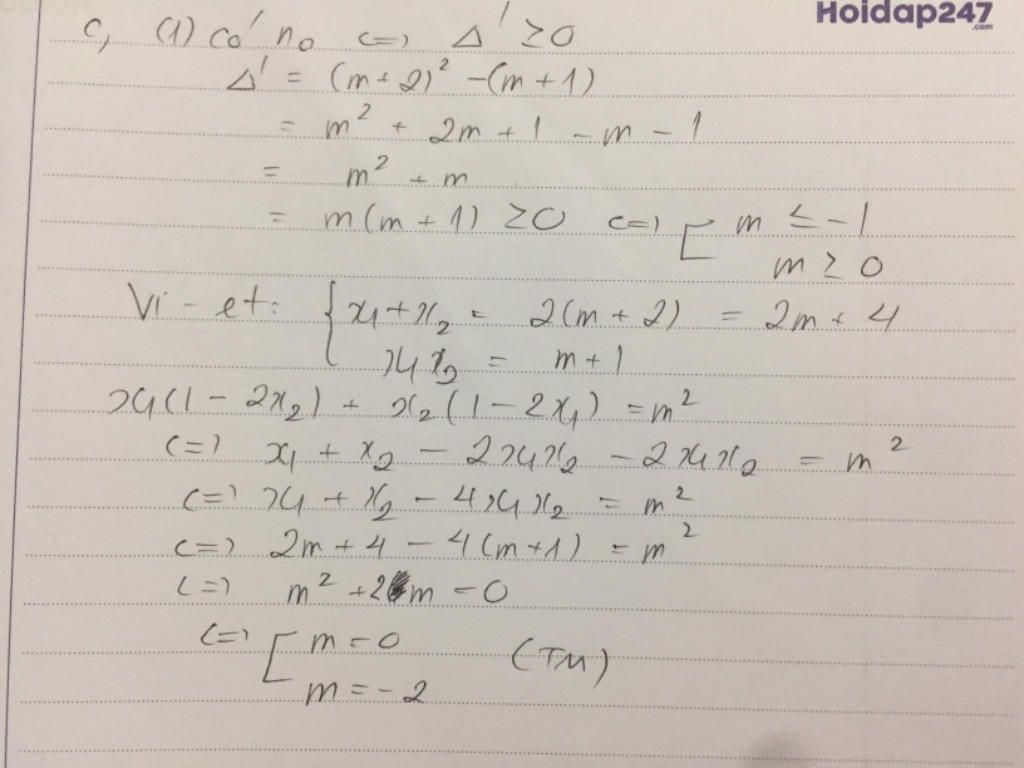 Hoidap247
.com
c, (1) có no <=> Δ' ≥ 0
Δ' = (m + 2)² - (m + 1)
= m² + 2m + 1 - m - 1
= m² + m
= m(m + 1) ≥ 0 <=> [ m ≤ -1
m ≥ 0
Vi - et: { x₁ + x₂ = 2(m + 2) = 2m + 4
x₁x₂ = m + 1
x₁(1 - 2x₂) + x₂(1 - 2x₁) = m²
<=> x₁ + x₂ - 2x₁x₂ - 2x₁x₂ = m²
<=> x₁ + x₂ - 4x₁x₂ = m²
<=> 2m + 4 - 4(m + 1) = m²
<=> m² + 2m = 0
<=> [ m = 0 (TM)
m = -2